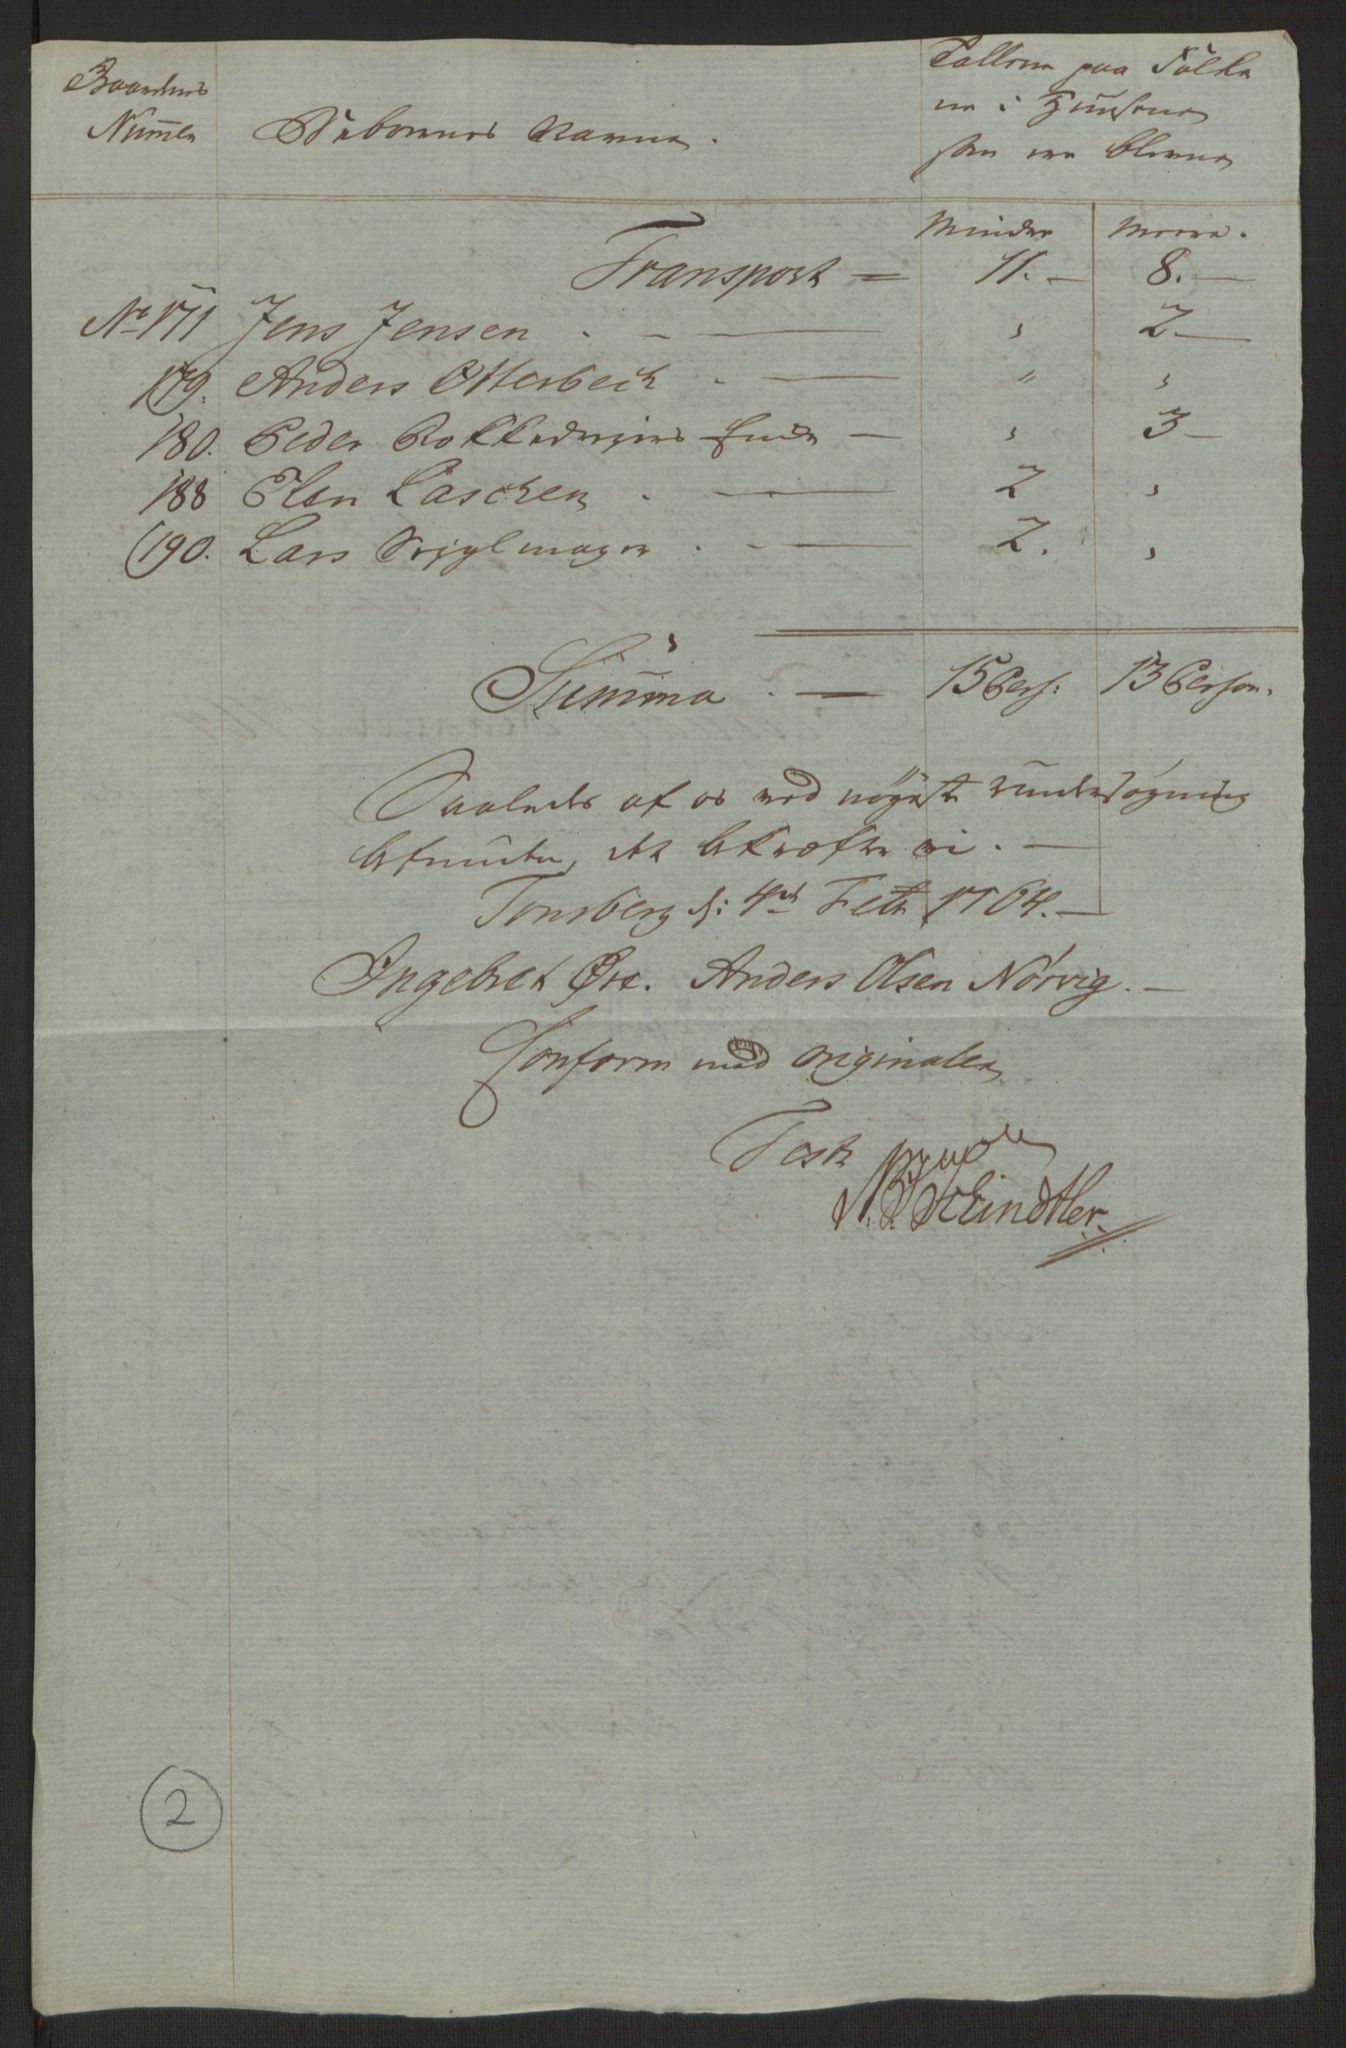 Gaardens Numer
Beboernes Navne.
Tallene paa Folke
ne i Huusene
som ere blevne
Minder Meere.
Transport = 11. — 8. —
No 171 Jens Jensen . — — " 2 —
179. Anders Otterbech . — " "
180. Peder Enke — " 3 —
188 Elen Laschen . — 2 "
190. Lars Seiglmager . — 2. "
Summa . — 15 Pers: 13 Person.
Saaledes af os ved nøyeste undersøgning
befunden, det bekræfter vi . —
Tonsberg d: 4de Febr 1764. —
Ingebret Øre. Anders Olsen Nørvig. —
Conform med originalen
Test
2